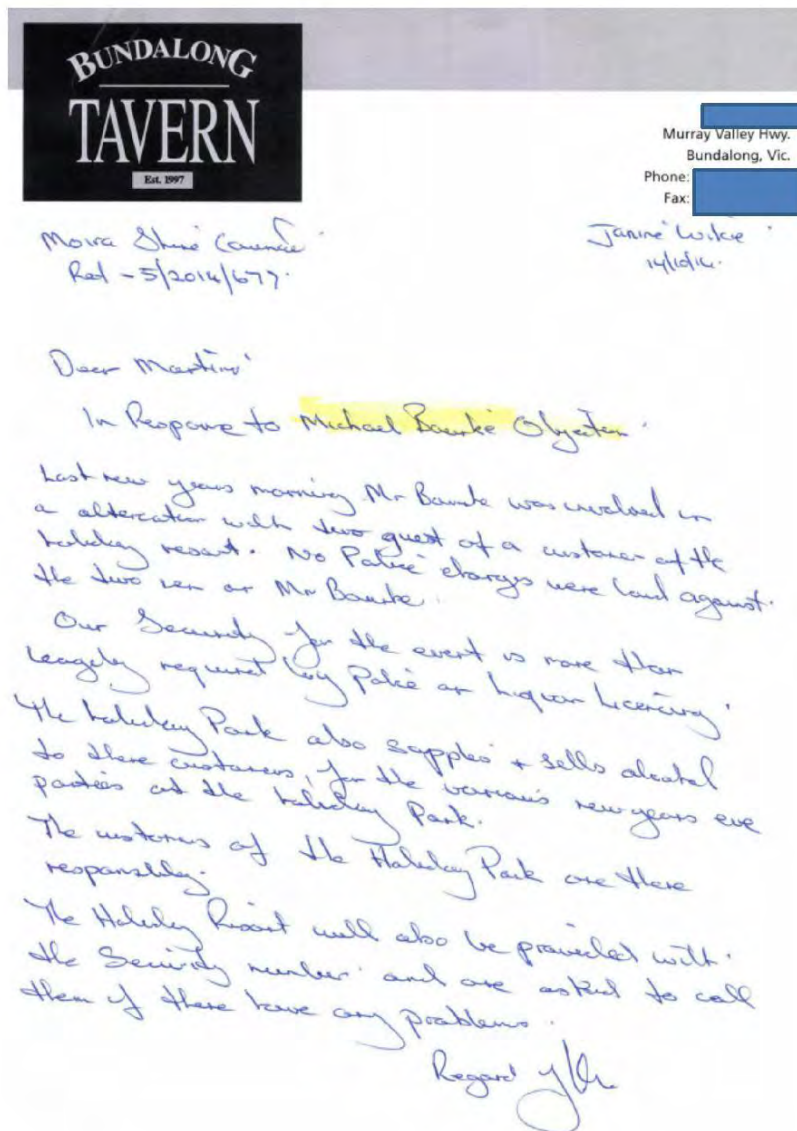 BUNDALONG
TAVERN
Est. 1997
Murray Valley Hwy.
Bundalong, Vic.
Phone:
Fax:
Moira Shire Council
Janine Wilkie
Ref - 5/2014/677.
Dear Martin
In Response to Michael Bourke Objection
Last new years morning Mr Bourke was involved in
a altercation with two guest of a customer of the
holiday resort. No Police charges were laid against
the two men or Mr Bourke.
Our Security for the event is more than
leagely required by Police or Liquor Licencing
The holiday Park also supplies + sells alcohol
to there customers, for the various new years eve
parties at the holiday Park.
The customers of the Holiday Park are there
responsibility.
The Holiday Resort will also be provided with
the Security number and are asked to call
them if there have any problems.
Regard